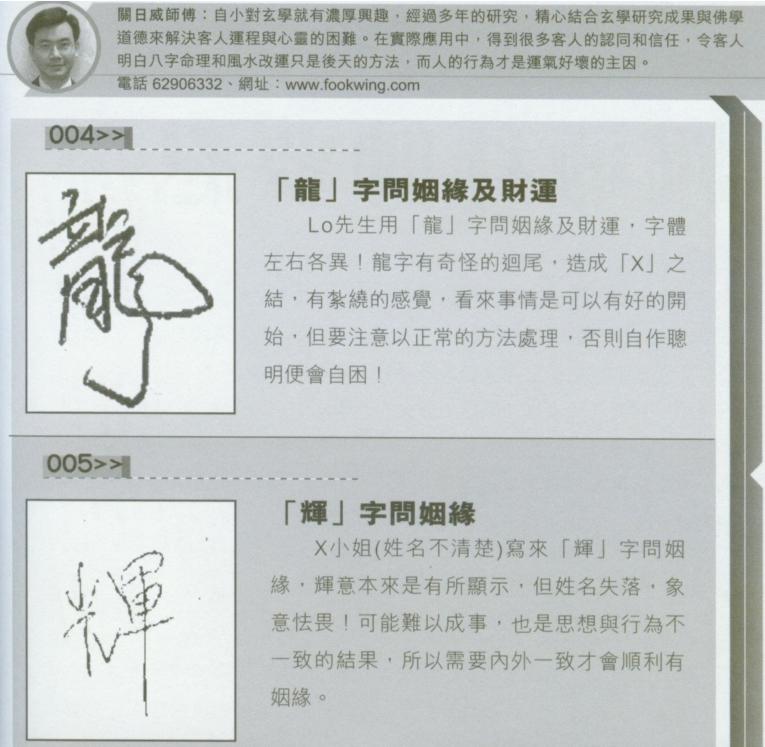 關日威師傅：自小對玄學就有濃厚興趣，經過多年的研究，精心結合玄學研究成果與佛學
道德來解決客人運程與心靈的困難。在實際應用中，得到很多客人的認同和信任，令客人
明白八字命理和風水改運只是後天的方法，而人的行為才是運氣好壞的主因。
電話 62906332、網址：www.fookwing.com
004>>
龍
「龍」字問姻緣及財運
Lo先生用「龍」字問姻緣及財運，字體
左右各異！龍字有奇怪的迴尾，造成「X」之
結，有紮繞的感覺，看來事情是可以有好的開
始，但要注意以正常的方法處理，否則自作聰
明便會自困！
005>>
輝
「輝」字問姻緣
X小姐(姓名不清楚)寫來「輝」字問姻
緣，輝意本來是有所顯示，但姓名失落，象
意怯畏！可能難以成事，也是思想與行為不
一致的結果，所以需要內外一致才會順利有
姻緣。